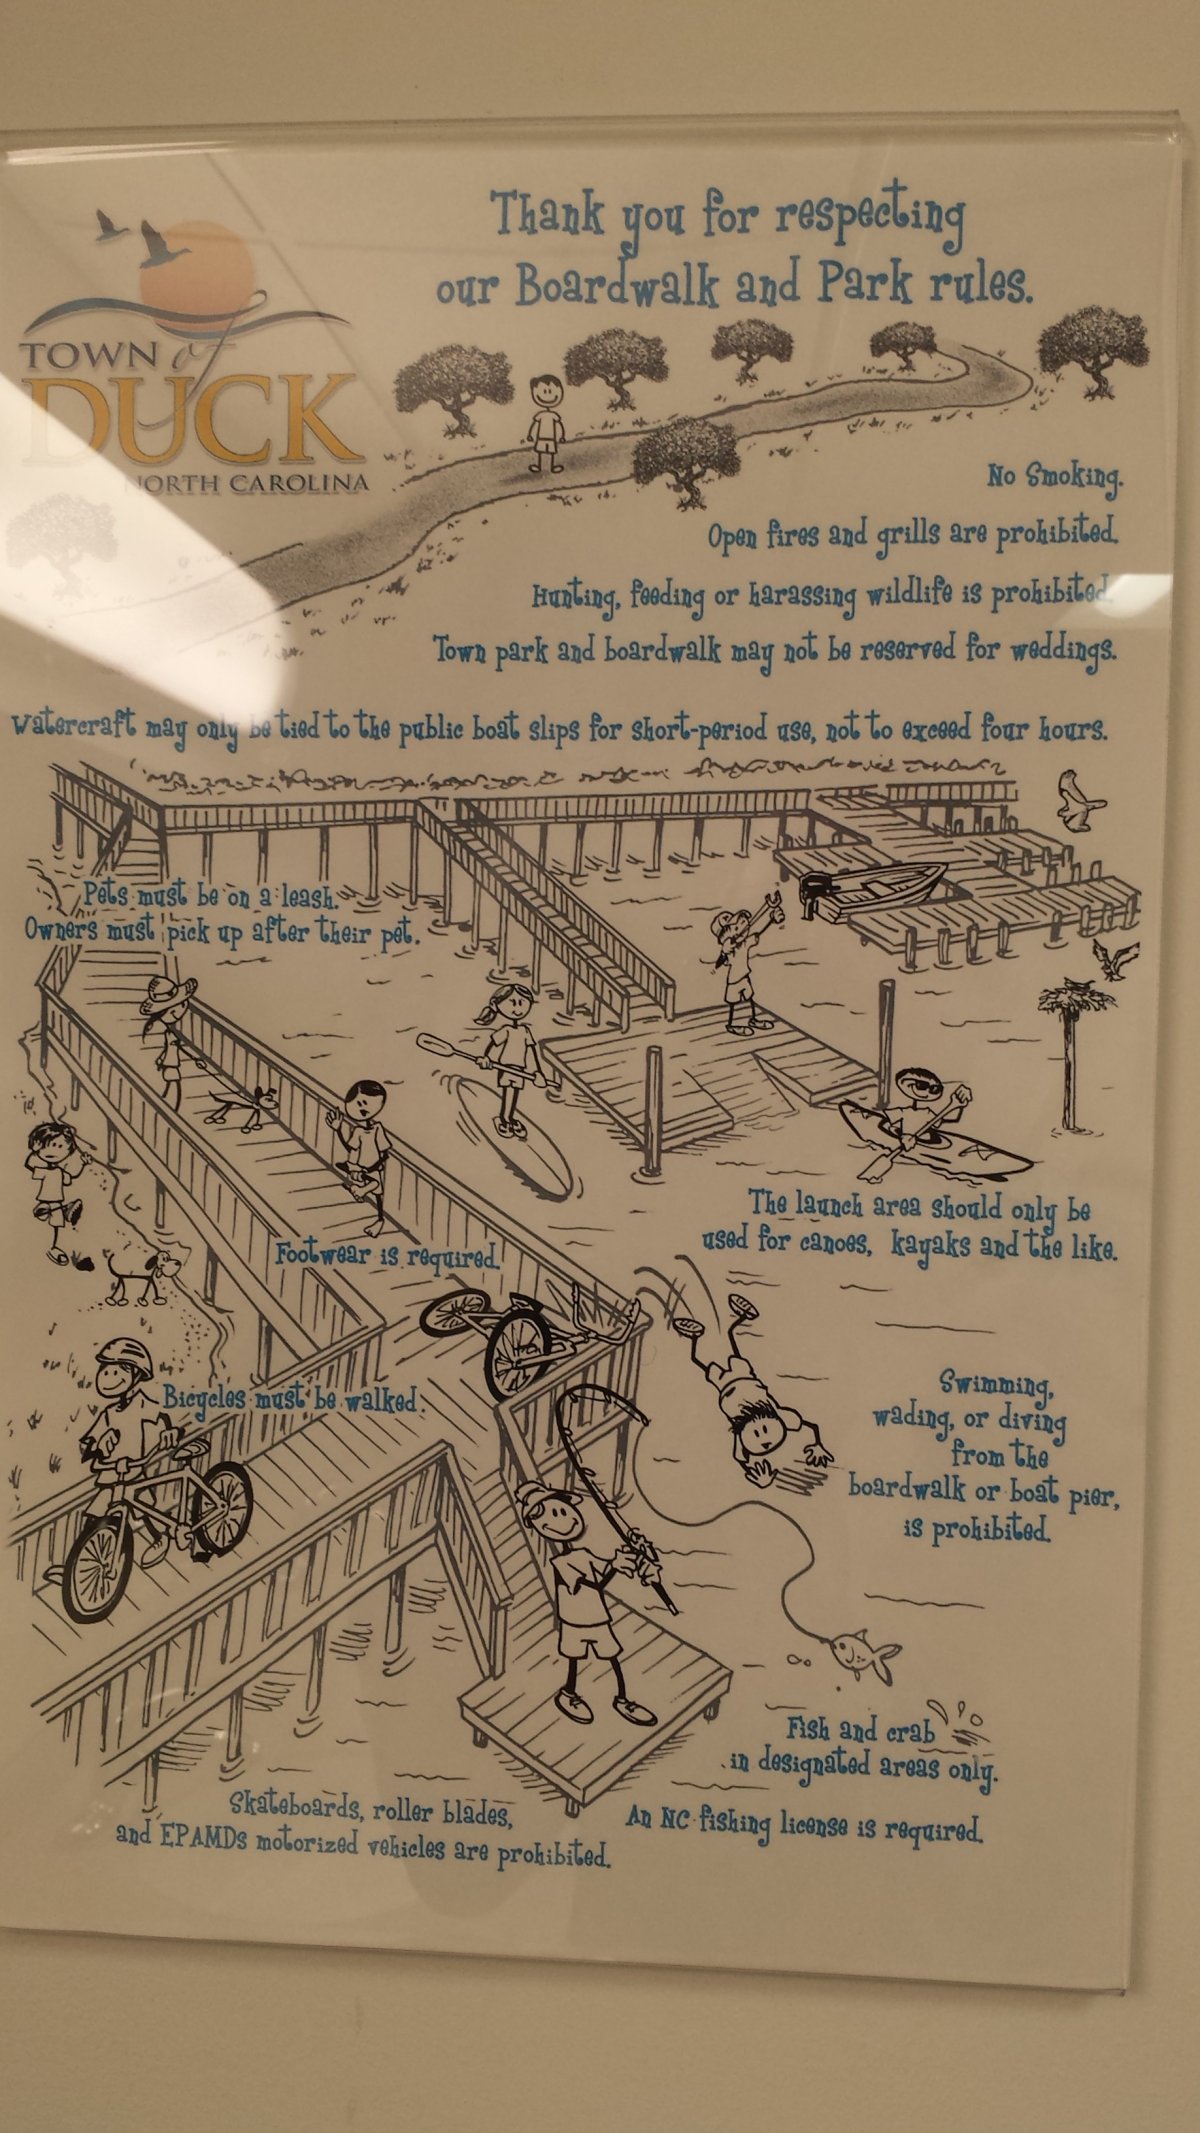 Thank you for respecting
our Boardwalk and Park rules.
TOWN of
DUCK
NORTH CAROLINA
No Smoking.
Open fires and grills are prohibited.
Hunting, feeding or harassing wildlife is prohibited.
Town park and boardwalk may not be reserved for weddings.
Watercraft may only be tied to the public boat slips for short-period use, not to exceed four hours.
Pets must be on a leash.
Owners must pick up after their pet.
The launch area should only be
used for canoes, kayaks and the like.
Footwear is required.
Bicycles must be walked.
Swimming,
wading, or diving
from the
boardwalk or boat pier,
is prohibited.
Fish and crab
in designated areas only.
An NC fishing license is required.
Skateboards, roller blades,
and EPAMDs motorized vehicles are prohibited.